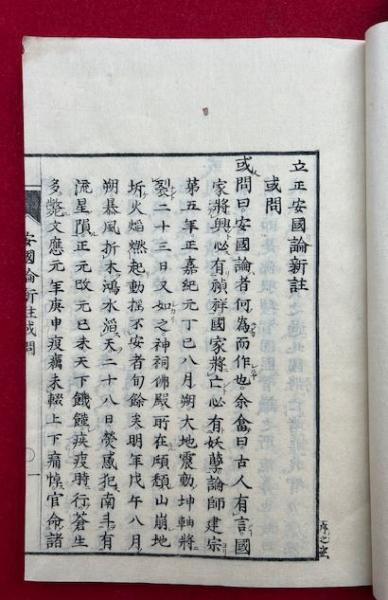 立正安國論新註
或問
或問曰安國論者何爲而作也余答曰古人有言國
家將興必有禎祥國家將亡必有妖孽論師建宗
第五年正嘉紀元丁巳八月朔大地震動坤軸將
裂二十三日又如之神祠佛殿所在頽山崩地
坼火焔燃起動搖不安者旬餘矣明年戊午八月
朔暴風折木鴻水滔天二十八日熒惑犯南斗有
流星隕正元改元己未天下饑饉疾疫時行蒼生
多斃文應元年庚申疫癘未輟上下痛惶官命諸
安國論新註或問